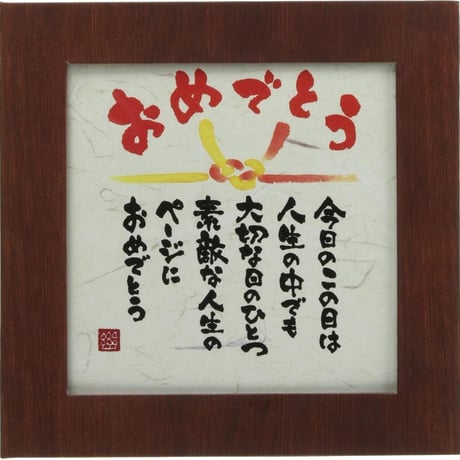 おめでとう
今日のこの日は
人生の中でも
大切な日のひとつ
素敵な人生の
ページに
おめでとう